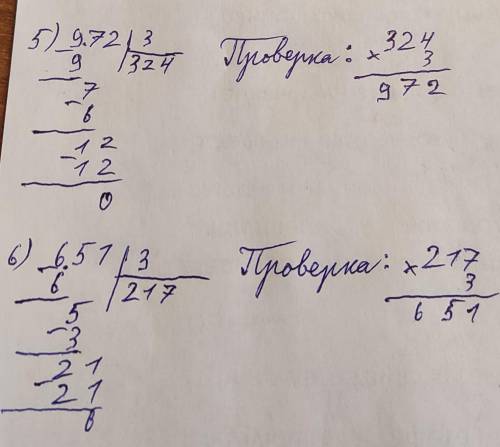 5) 9.72 | 3 Проверка: 324
- 9 324 × 3
7 972
- 6
12
- 12
0
6) 6.51 | 3 Проверка: × 217
- 6 217 3
5 651
- 3
21
- 21
0